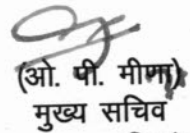 (ओ. पी. मीणा)
मुख्य सचिव